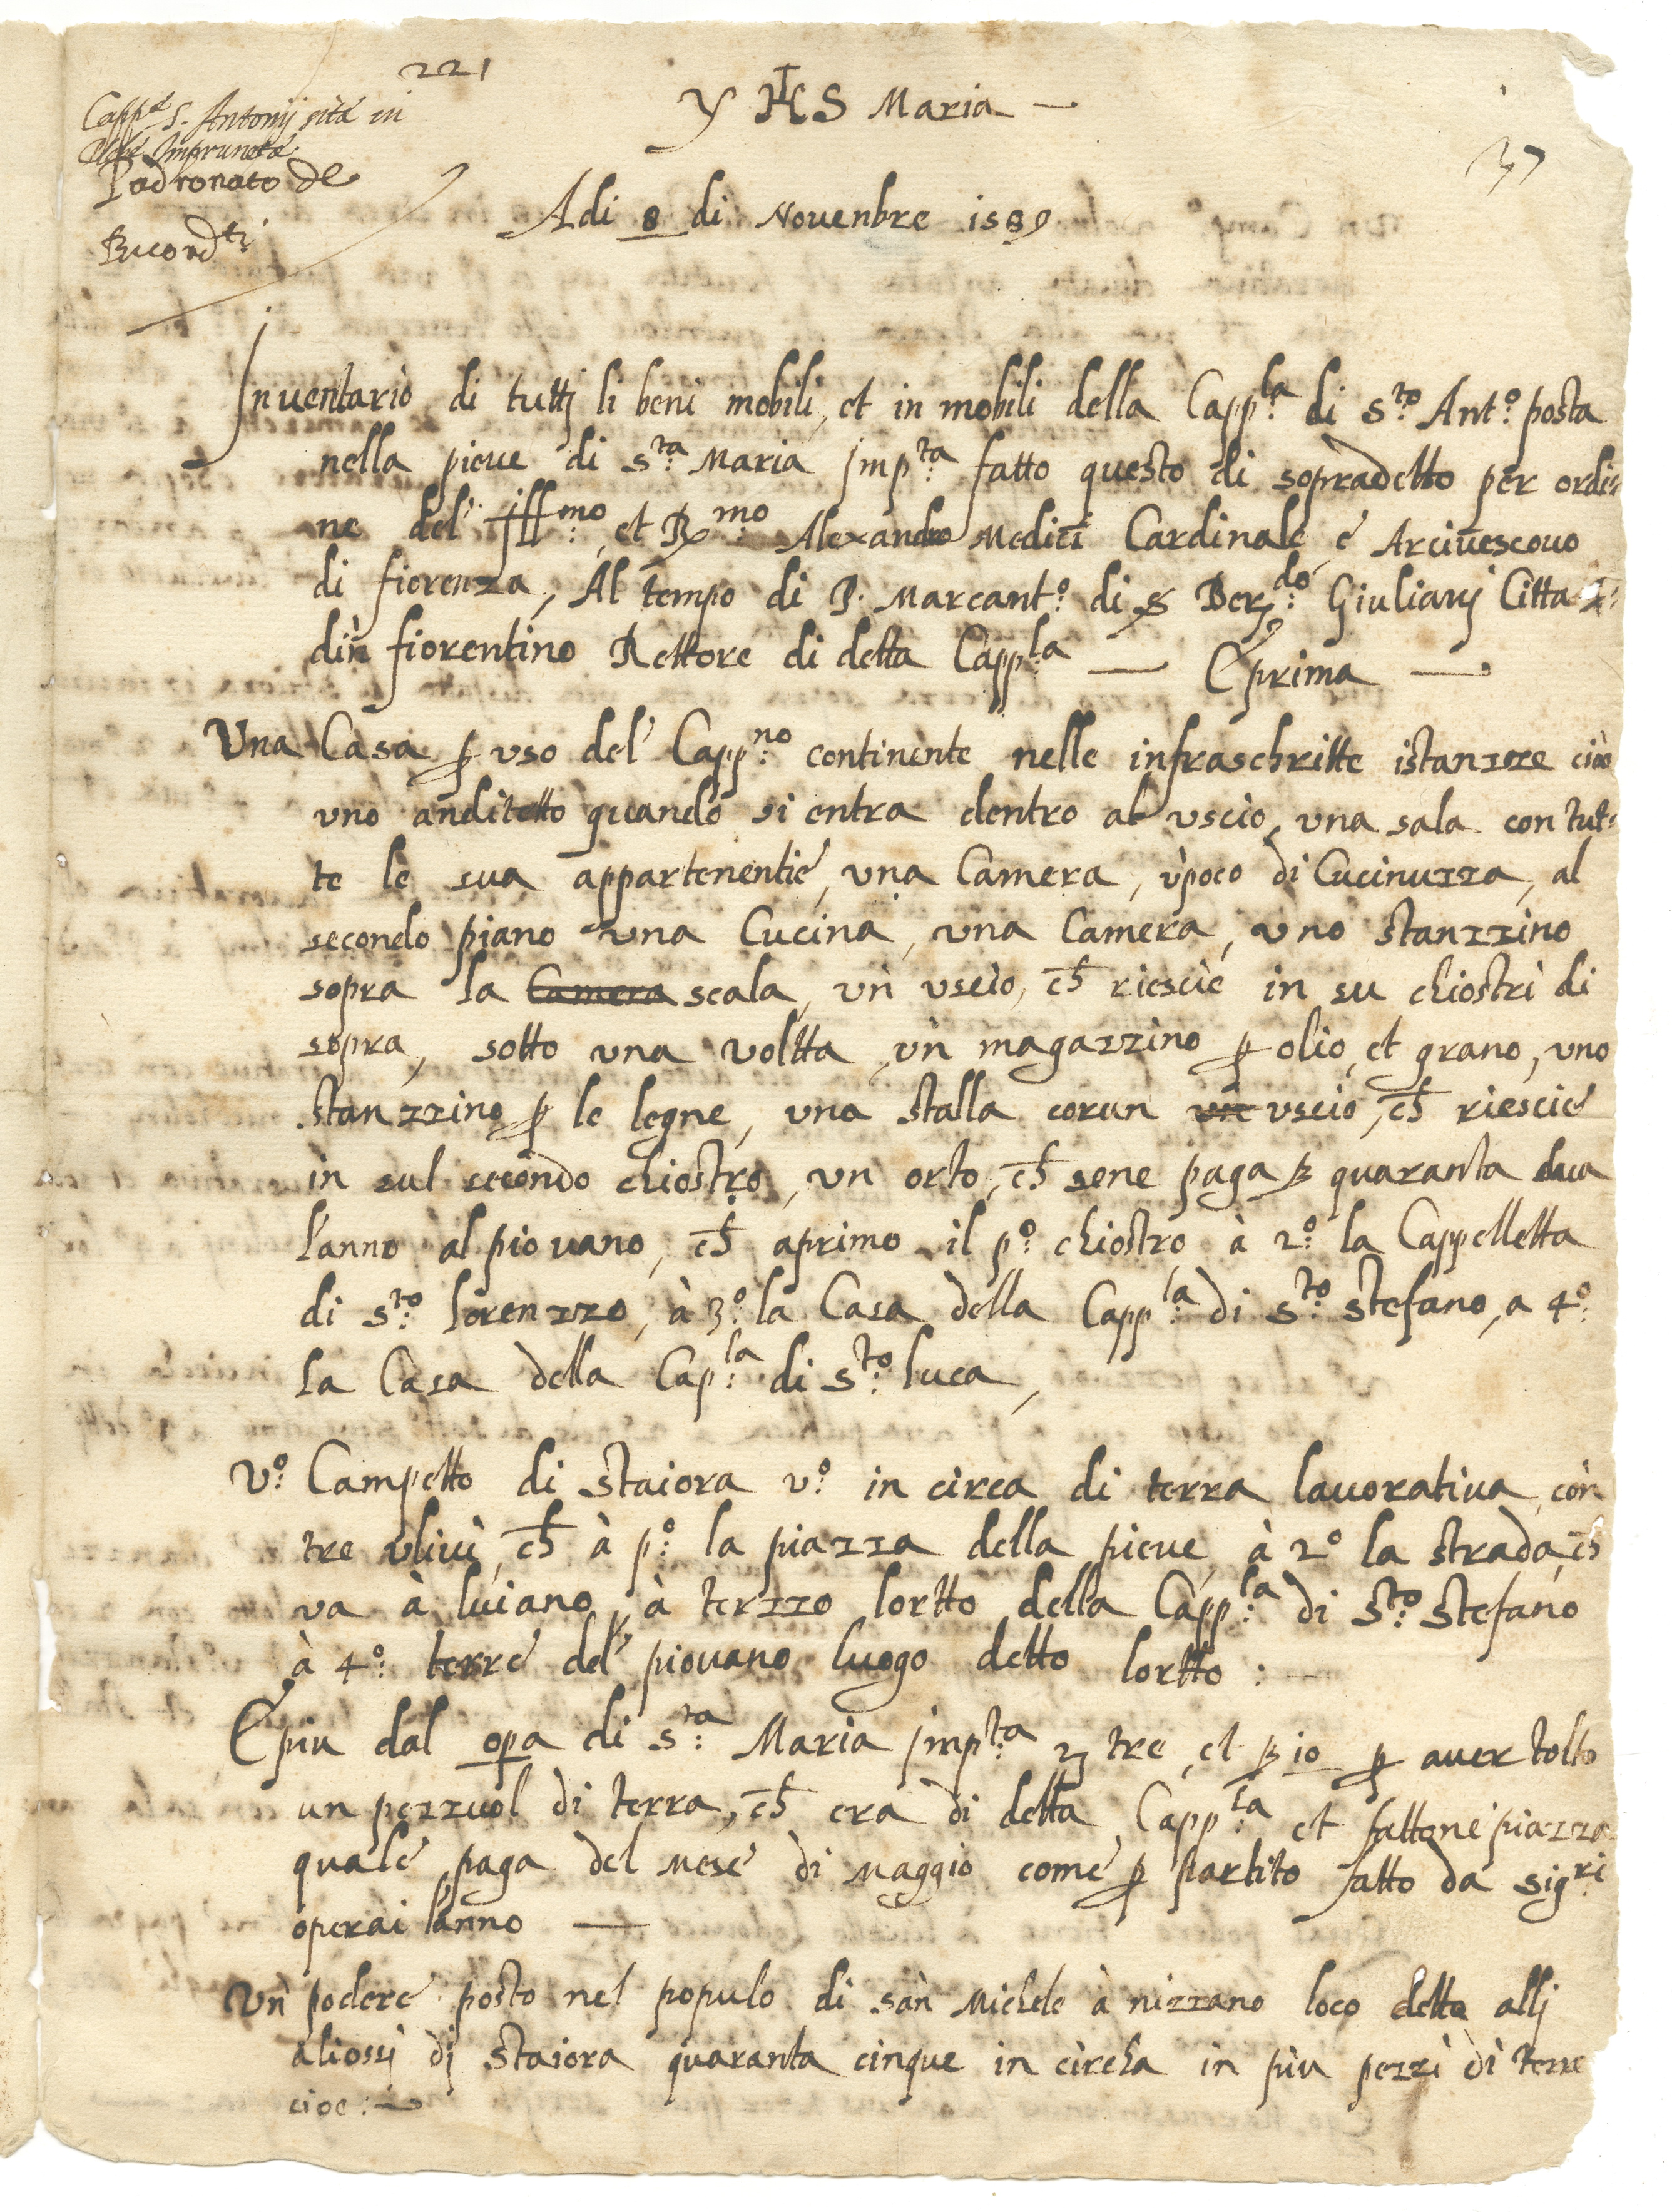 221
Capp.ª S. Antonij sita in
Plebe Impruneta
Padronato de
Buond.ti
Y IHS Maria —
37
Adi 8 di Nouenbre 1589
Inuentario di tuttj li beni mobili, et in mobili della Capp.la di S.to Ant.o posta
nella pieue di S.ta Maria Imp.ta fatto questo di sopradetto per ordi=
ne del' Ill.mo et R.mo Alexandro Medici Cardinale e Arciuescouo
di fiorenza, Al tempo di P. Marcant.o di Ber.do Giulianj Citta
din fiorentino Rettore di detta Capp.la — E prima —
Una Casa ꝑ uso del' Capp.no continente nelle infraschritte istanzze cioe
uno anditetto quando si entra dentro al uscio, una sala con tut=
te le sua appartenentie, una Camera, ù poco di Cucinuzza, al
secondo piano una Cucina, una Camera, uno stanzzino
sopra la Camera scala, un uscio, ch̄ riescie in su chiostri di
sopra, sotto una voltta un magazzino ꝑ olio et grano, uno
stanzzino ꝑ le legne, una stalla con un un uscio, ch̄ riescie
in sul secondo chiostro, un orto, ch̄ sene paga ß quaranta dua
l'anno al piouano, ch̄ aprimo il p.o chiostro, à 2.o la Cappelletta
di S.to Lorenzzo, à 3.o la Casa della Capp.la di S.to Stefano, a 4.o
la Casa della Cap.la di S.to luca,
V.o Campetto di staiora v.o in circa di terra lauorativa con
tre uliui, ch̄ à p.o la piazza della pieue, à 2.o la strada, ch̄
va à luiano, à terzzo lortto della Capp.la di S.to Stefano
à 4.o terre del' piouano luogo detto lortto : —
E piu dal opa di S.ta Maria Imp.ta tre et ß 10 ꝑ auer tolto
un pezzuol di terra, ch̄ era di detta Capp.la et fattone piazza
quale paga del mese di Maggio come ꝑ partito fatto da Sig.ri
operai l'anno —
Un podere posto nel popolo di san Michele à nizzano loco detto allj
aliossi dj staiora quaranta cinque in circha in piu pezzi di terre
cioe : —